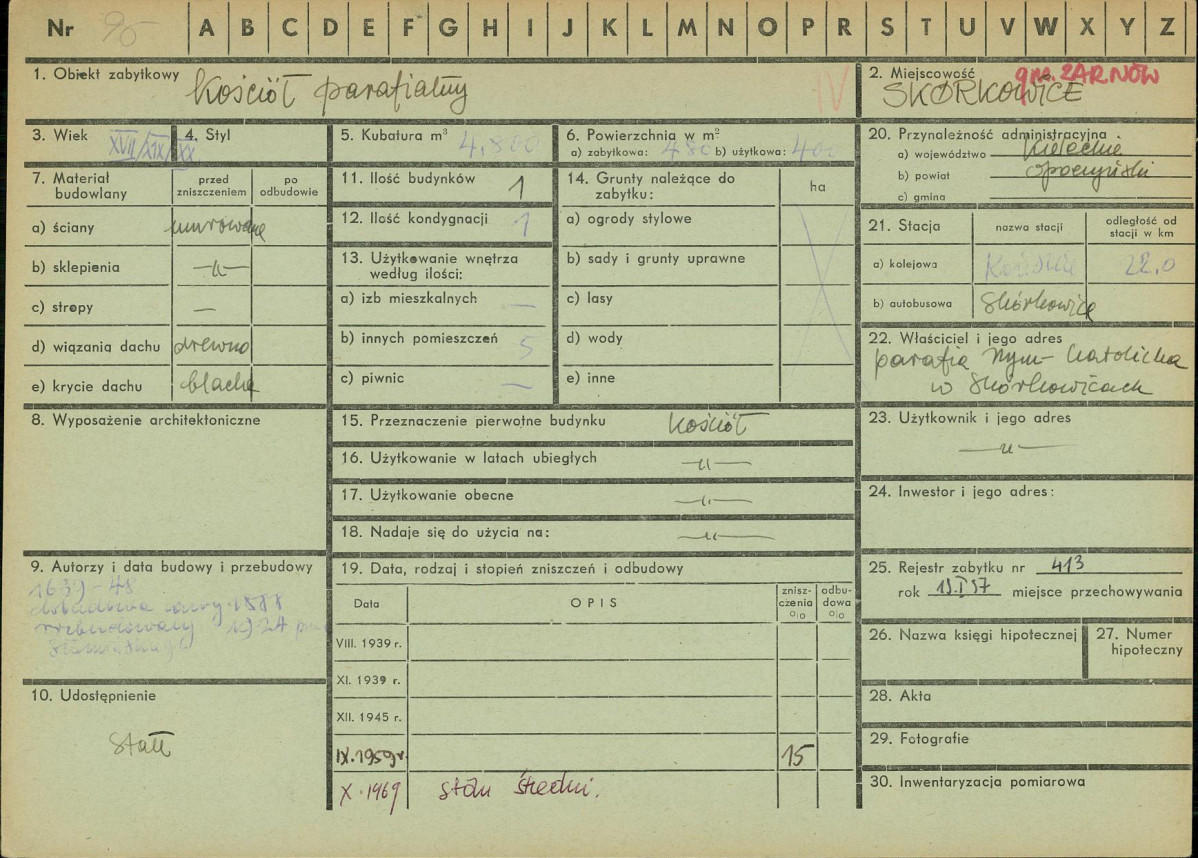 Nr 90 A B C D E F G H I J K L M N O P R S T U V W X Y Z
1. Obiekt zabytkowy Kościół parafialny IV
2. Miejscowość gm. ŻARNÓW
SKÓRKOWICE
3. Wiek XVII/XIX/XX
4. Styl
5. Kubatura m³ 4.800
6. Powierzchnia w m²
a) zabytkowa: 480 b) użytkowa: 400
7. Materiał budowlany
przed zniszczeniem
po odbudowie
a) ściany murowane
b) sklepienia —„—
c) stropy —
d) wiązania dachu drewno
e) krycie dachu blacha
8. Wyposażenie architektoniczne
9. Autorzy i data budowy i przebudowy
1639-48
1888
rozbudowany 1924
10. Udostępnienie
stałe
11. Ilość budynków 1
12. Ilość kondygnacji 1
13. Użytkowanie wnętrza
według ilości:
a) izb mieszkalnych —
b) innych pomieszczeń 5
c) piwnic —
14. Grunty należące do
zabytku:
ha
a) ogrody stylowe
b) sady i grunty uprawne
c) lasy
d) wody
e) inne
15. Przeznaczenie pierwotne budynku Kościół
16. Użytkowanie w latach ubiegłych —„—
17. Użytkowanie obecne —„—
18. Nadaje się do użycia na: —„—
19. Data, rodzaj i stopień zniszczeń i odbudowy
Data OPIS znisz-
czenia
%
odbu-
dowa
%
VIII. 1939 r.
XI. 1939 r.
XII. 1945 r.
IX. 1959 r. 15
X. 1969 stan średni.
20. Przynależność administracyjna
a) województwo Kieleckie
b) powiat opoczyński
c) gmina
21. Stacja
nazwa stacji
odległość od
stacji w km
a) kolejowa 22,0
b) autobusowa Skórkowice
22. Właściciel i jego adres
parafia rzym-katolicka
w Skórkowicach
23. Użytkownik i jego adres
—„—
24. Inwestor i jego adres:
25. Rejestr zabytku nr 413
rok 15.I 57 miejsce przechowywania
26. Nazwa księgi hipotecznej
27. Numer
hipoteczny
28. Akta
29. Fotografie
30. Inwentaryzacja pomiarowa